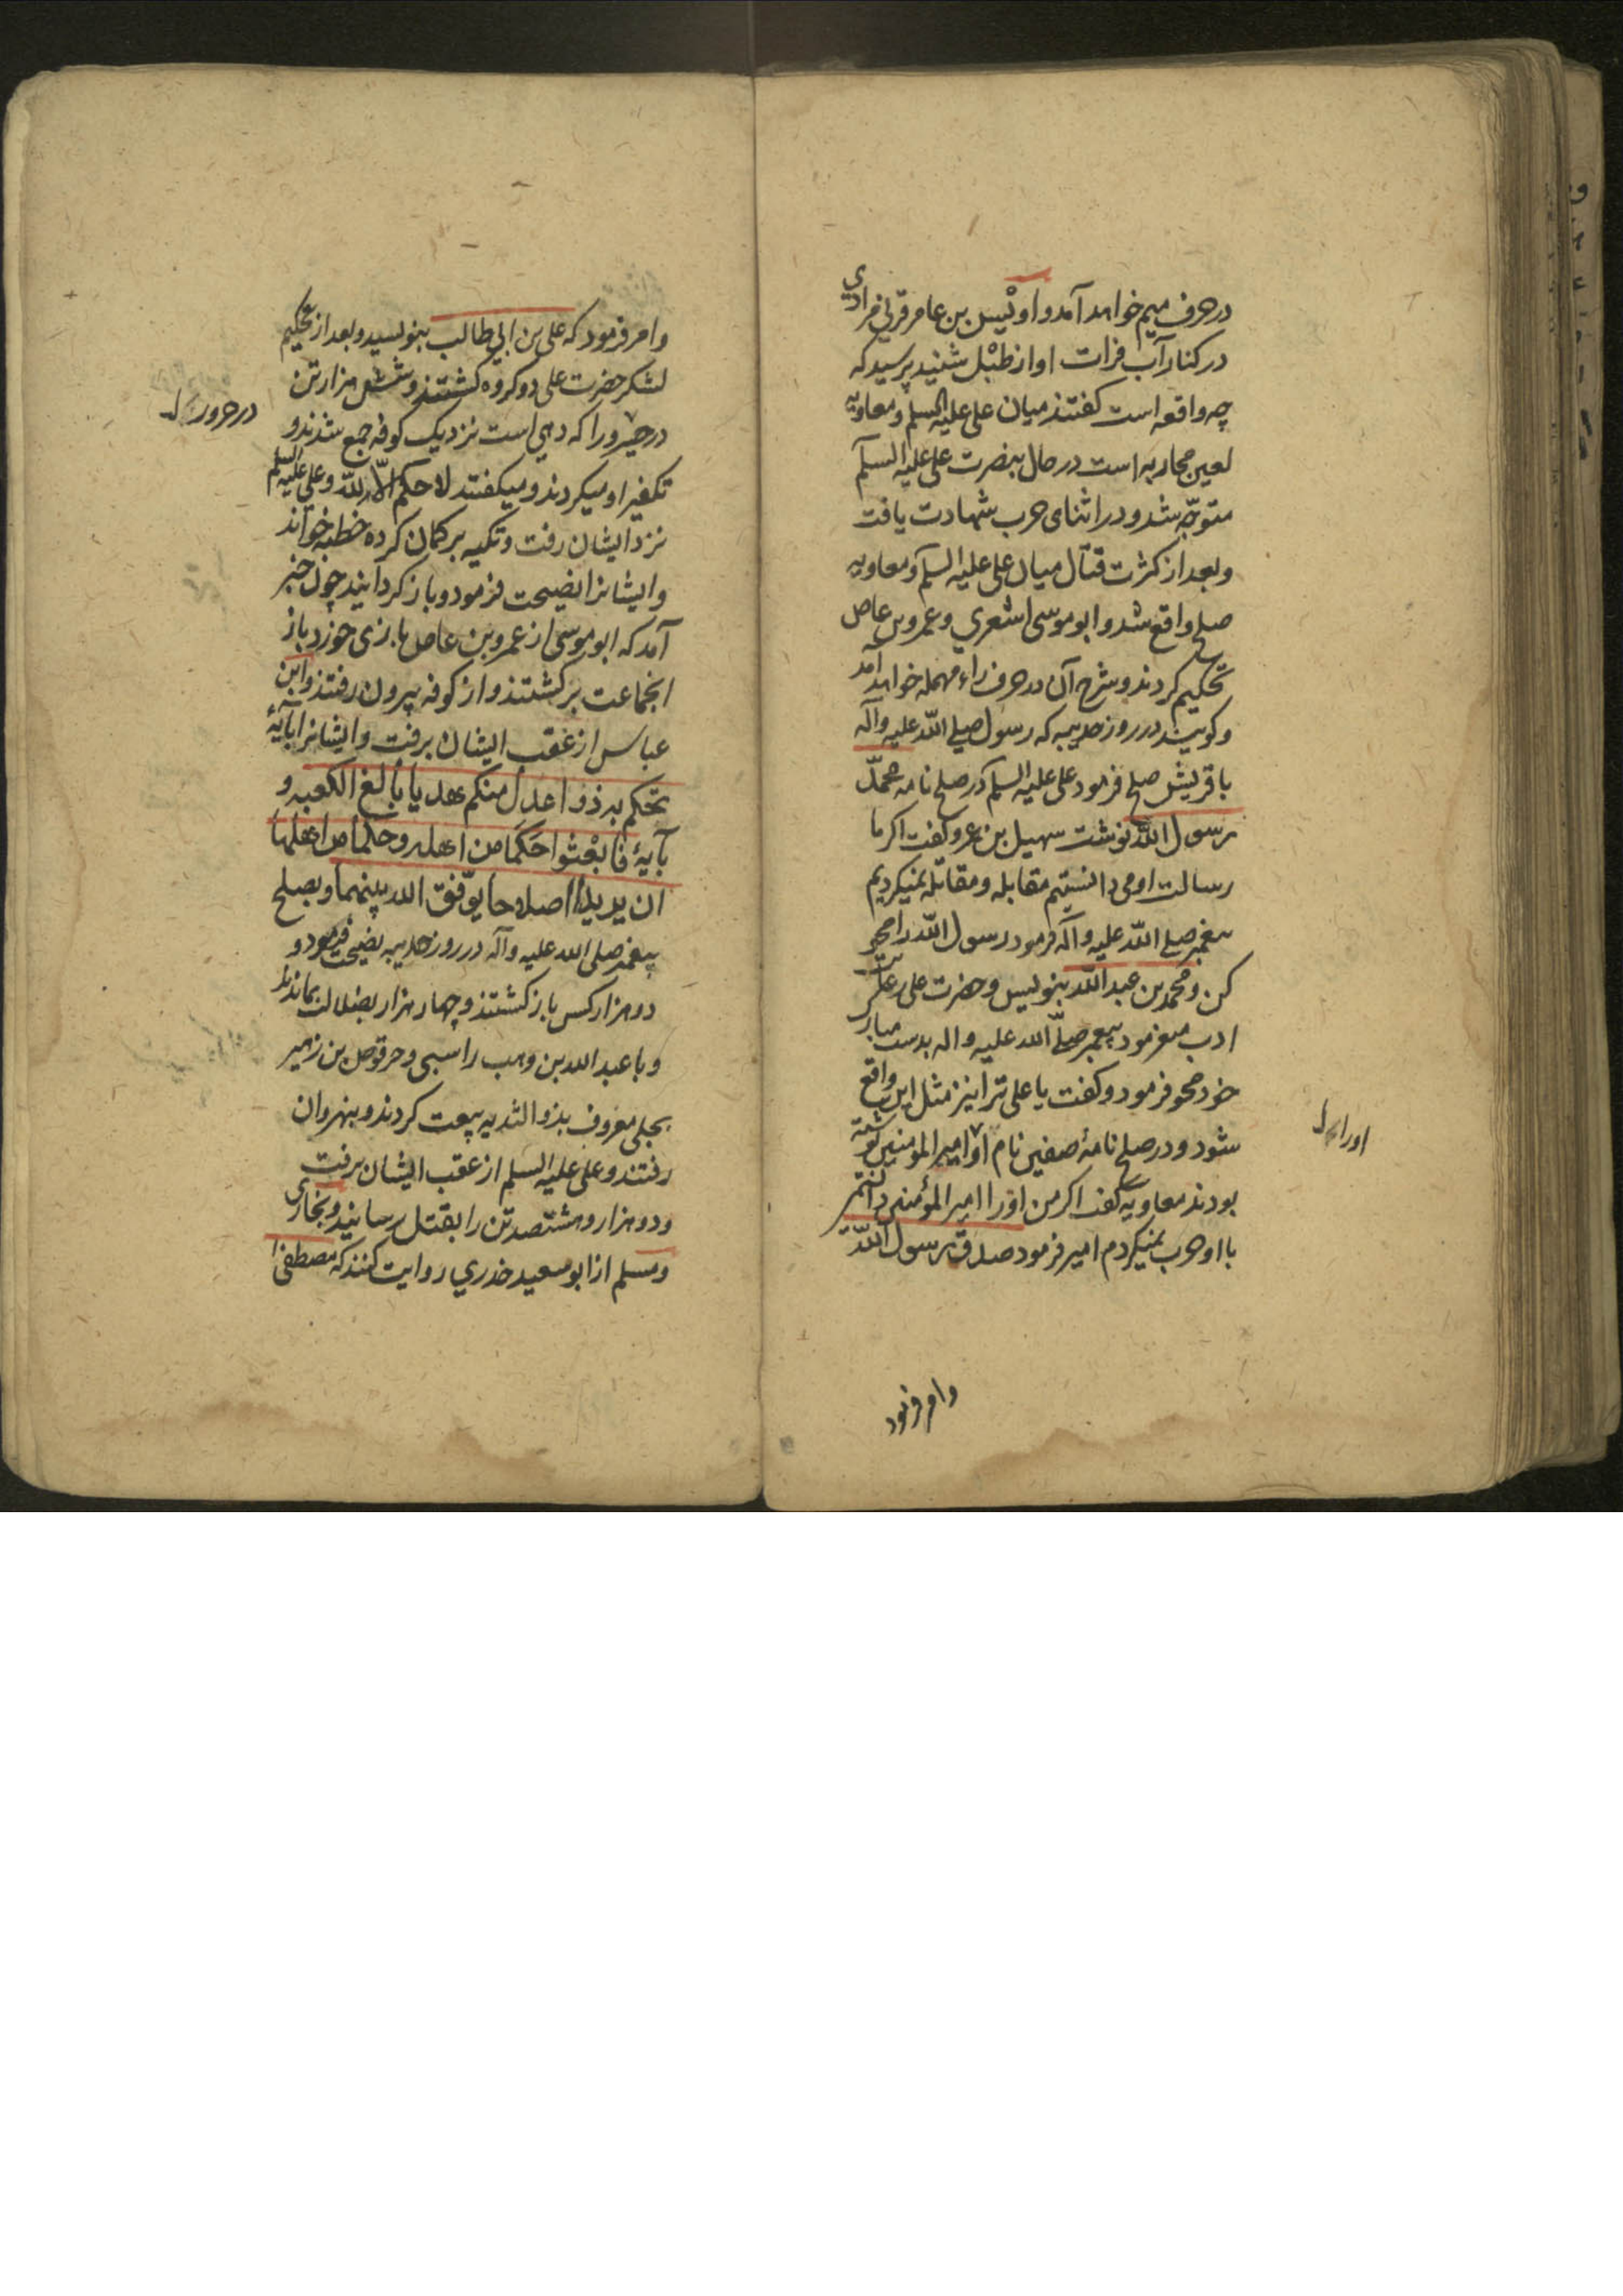 در حرف میم خواهد آمد و اویْس بن عامر قرنی مرادی
در کنار آب فرات اواز طبْل شنید پرسید که
چه واقعه است کفتند میان علی علیه السلم و معاویه
لعین محاربه است در حال بنصرت علی علیه السلم
متوجّه شد و در اثنای حرب شهادت یافت
و بعد از کثرت قتال میان علی علیه السلم و معاویه
صلح واقع شد و ابو موسی اشعری و عمرو بن عاص
تحکیم کردند و شرح آن در حرف راء مهمله خواهد امد
و کویند در روز حدیبیه که رسول صلی اللّه علیه وآله
با قریش صلح فرمود علی علیه السلم در صلح نامه محمّد
رسول اللّه نوشت سهیل بن عمرو کفت اکر ما
رسالت او می دانستیم مقابله و مقاتله نمیکردیم
پیغمبر صلی اللّه علیه وآله فرمود رسول اللّه را محو
کن و محمد بن عبد اللّه بنویس و حضرت علی رعایت
ادب میفرمود پیغمبر صلّی اللّه علیه واله بدست مبارک
خود محو فرمود و کفت یا علی ترا نیز مثل این واقع
شود و در صلح نامهٔ صفین نام او امیر المومنین نوشته
بودند معاویه کفت اکر من اورا امیر المؤمنین دانستم
با او حرب نمیکردم امیر فرمود صدق رسول اللّه
اورا
وامر فرمود
وامر فرمود که علی بن ابی طالب بنویسید و بعد از تحکیم
لشکر حضرت علی دو کروه کشتند و شش هزار تن
در حرورا که دهی است نزدیک کوفه جمع شدند و
تکفیر او میکردند و میکفتند لا حکم الّا للّه و علی علیه السلم
نزد ایشان رفت و تکیه بر کمان کرده خطبه خواند
و ایشانرا نصیحت فرمود و باز کردانید چون خبر
آمد که ابو موسی از عمرو بن عاص بازی خورد باز
انجماعت برکشتند و از کوفه بیرون رفتند و ابن
عباس از عقب ایشان برفت و ایشانرا بآیهٔ
تحکم به ذوا عدل منکم هدیا بالغ الکعبه و
بآیهٔ فابْعثوا حَکَما من اهله وحکما من اهلها
ان یریدا اصلاحا یوّفق اللّه بینهما و بصلح
پیغمبر صلی اللّه علیه وآله در روز حدیبیه نصیحت فرمود و
دو هزار کس باز کشتند و چهار هزار بضلالت بماندند
و با عبد اللّه بن وهب راسبی و حرقوص بن زهیر
بجلی معروف بذو الثدیه بیعت کردند و بنهروان
رفتند و علی علیه السلم از عقب ایشان برفت
و دو هزار و هشتصد تن را بقتل رسانید و بخاری
و مسلم از ابو سعید خدری روایت کنند که مصطفی
در حرورا